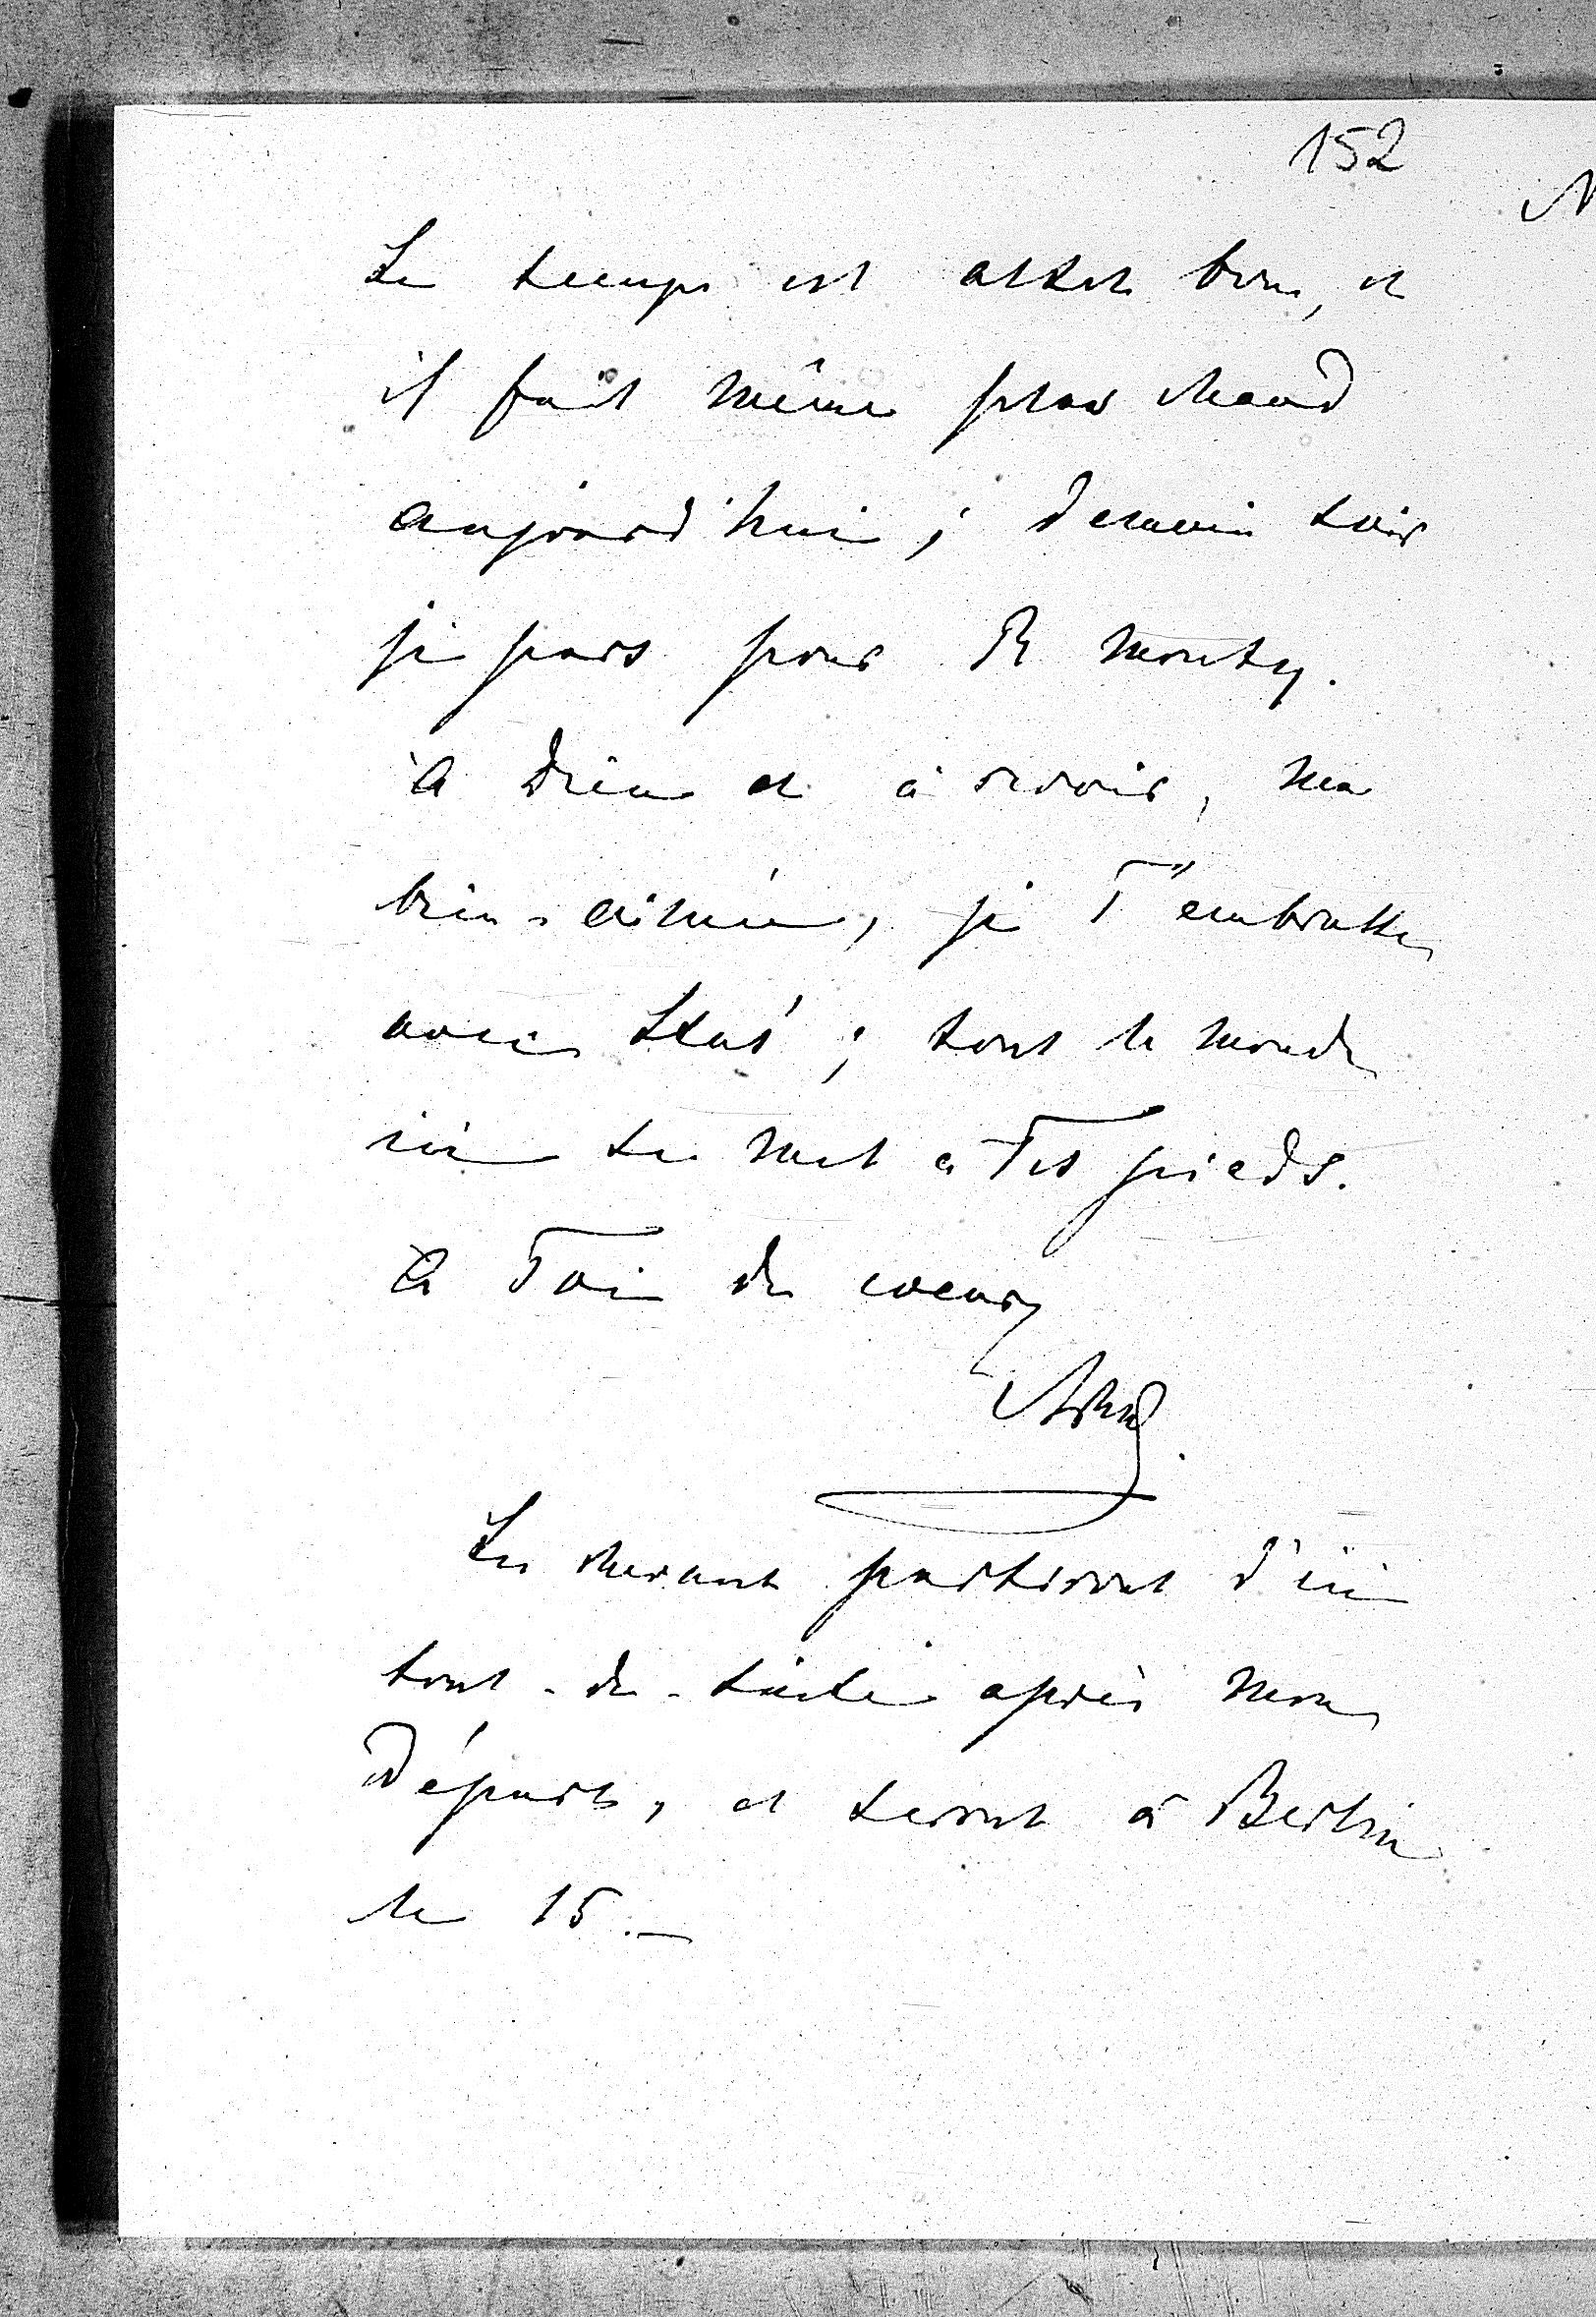 152
Le temps est assez bon, et
il fait même plus chaud
aujourd'hui; demain soir
je pars pour R monty.
à Dieu et à revoir, ma
bien-aimée, je T'embrasse
avec Staś; tout le monde
ici se met à Tes pieds.
à Toi de coeur
Les chevaux partiront d'ici
tout-de-suite après mon
départ, et seront à Berlin
le 15.